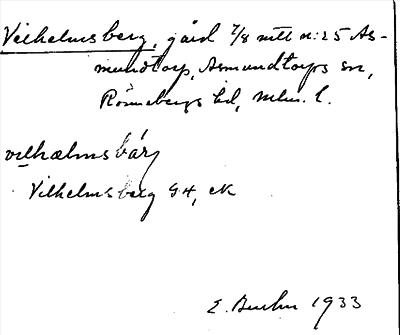 Vilhelmsberg, gård 7/8 mtl n:25 As-
mundtorp, Asmundtorps sn,
Rönnebergs hd, Mlm. l.
vilhælmsbárj
Vilhelmsberg GH, ek
E. Buhn 1933